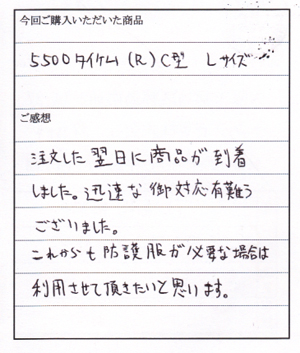 今回ご購入いただいた商品
5500タイケム(R)C型 Lサイズ
ご感想
注文した翌日に商品が到着
しました。迅速な御対応有難う
ございました。
これからも防護服が必要な場合は
利用させて頂きたいと思います。